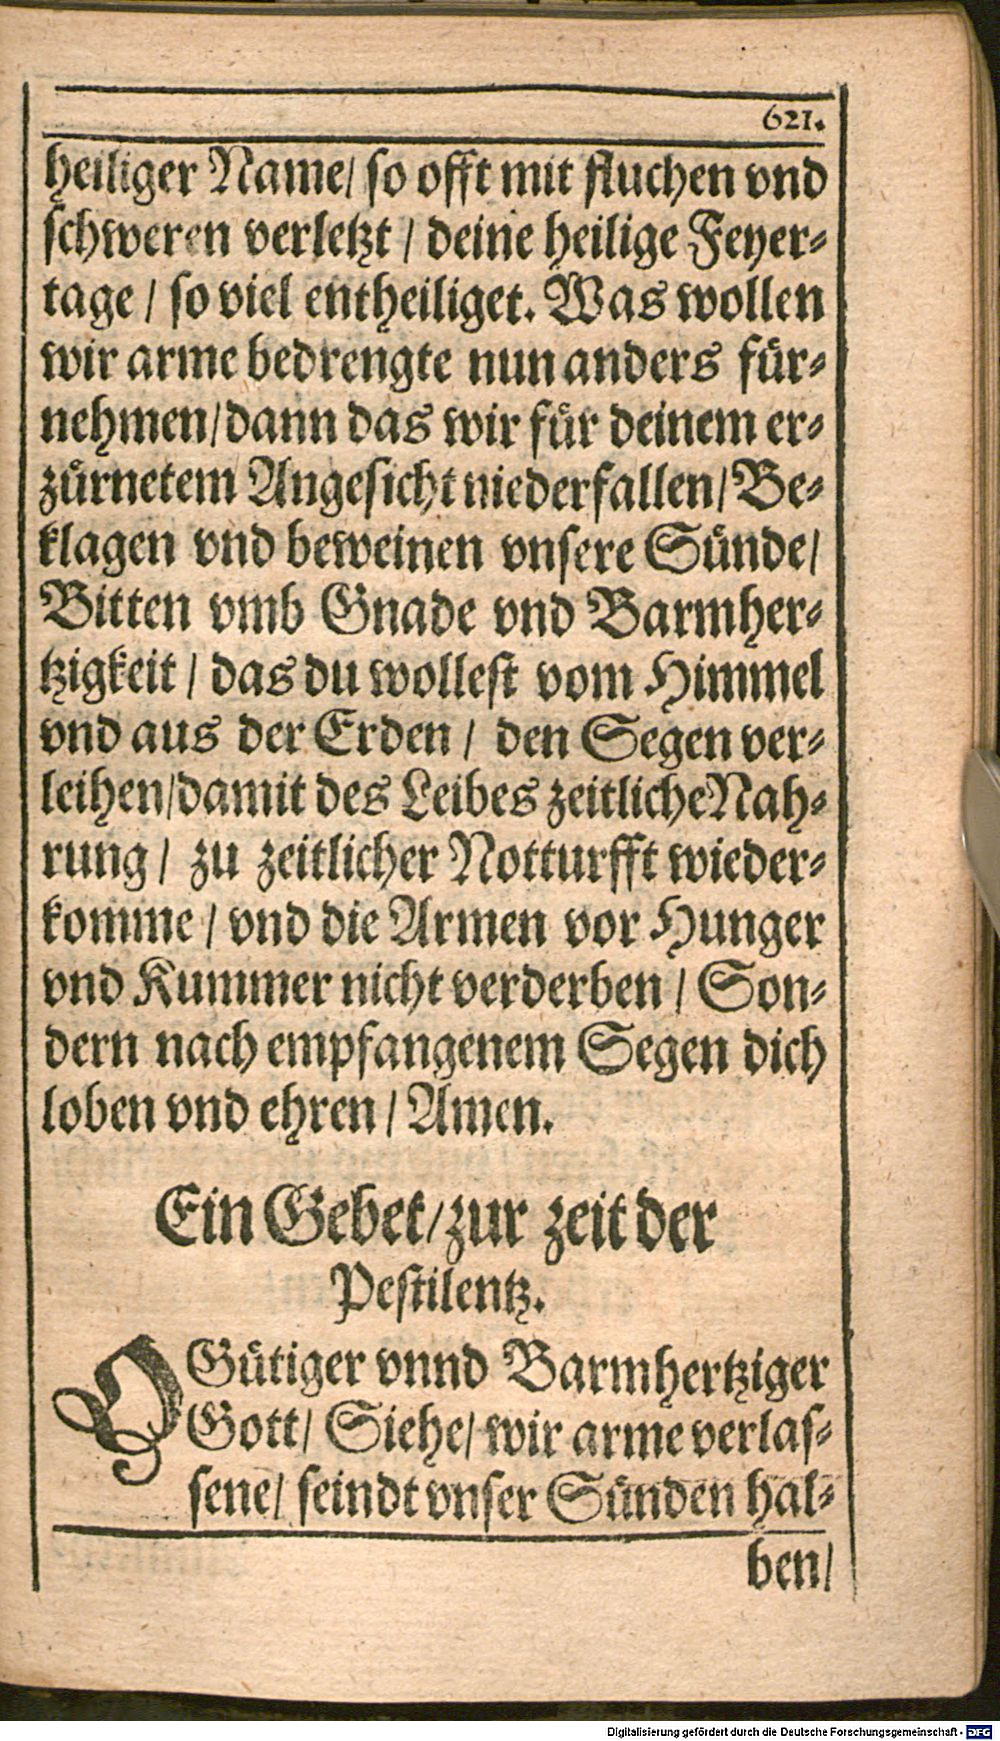 621.
heiliger Name/ so offt mit fluchen vnd
schweren verletzt / deine heilige Feyer-
tage / so viel entheiliget. Was wollen
wir arme bedrengte nun anders für-
nehmen/dann das wir für deinem er-
zürnetem Angesicht niederfallen/Be-
klagen vnd beweinen vnsere Sünde/
Bitten vmb Gnade vnd Barmher-
tzigkeit / das du wollest vom Himmel
vnd aus der Erden / den Segen ver-
leihen/damit des Leibes zeitliche Nah-
rung / zu zeitlicher Notturfft wieder-
komme / vnd die Armen vor Hunger
vnd Kummer nicht verderben / Son-
dern nach empfangenem Segen dich
loben vnd ehren / Amen.
Ein Gebet/zur zeit der
Pestilentz.
O Gütiger vnnd Barmhertziger
Gott/ Siehe/ wir arme verlas-
sene/ seindt vnser Sünden hal-
ben/
Digitalisierung gefördert durch die Deutsche Forschungsgemeinschaft - DFG